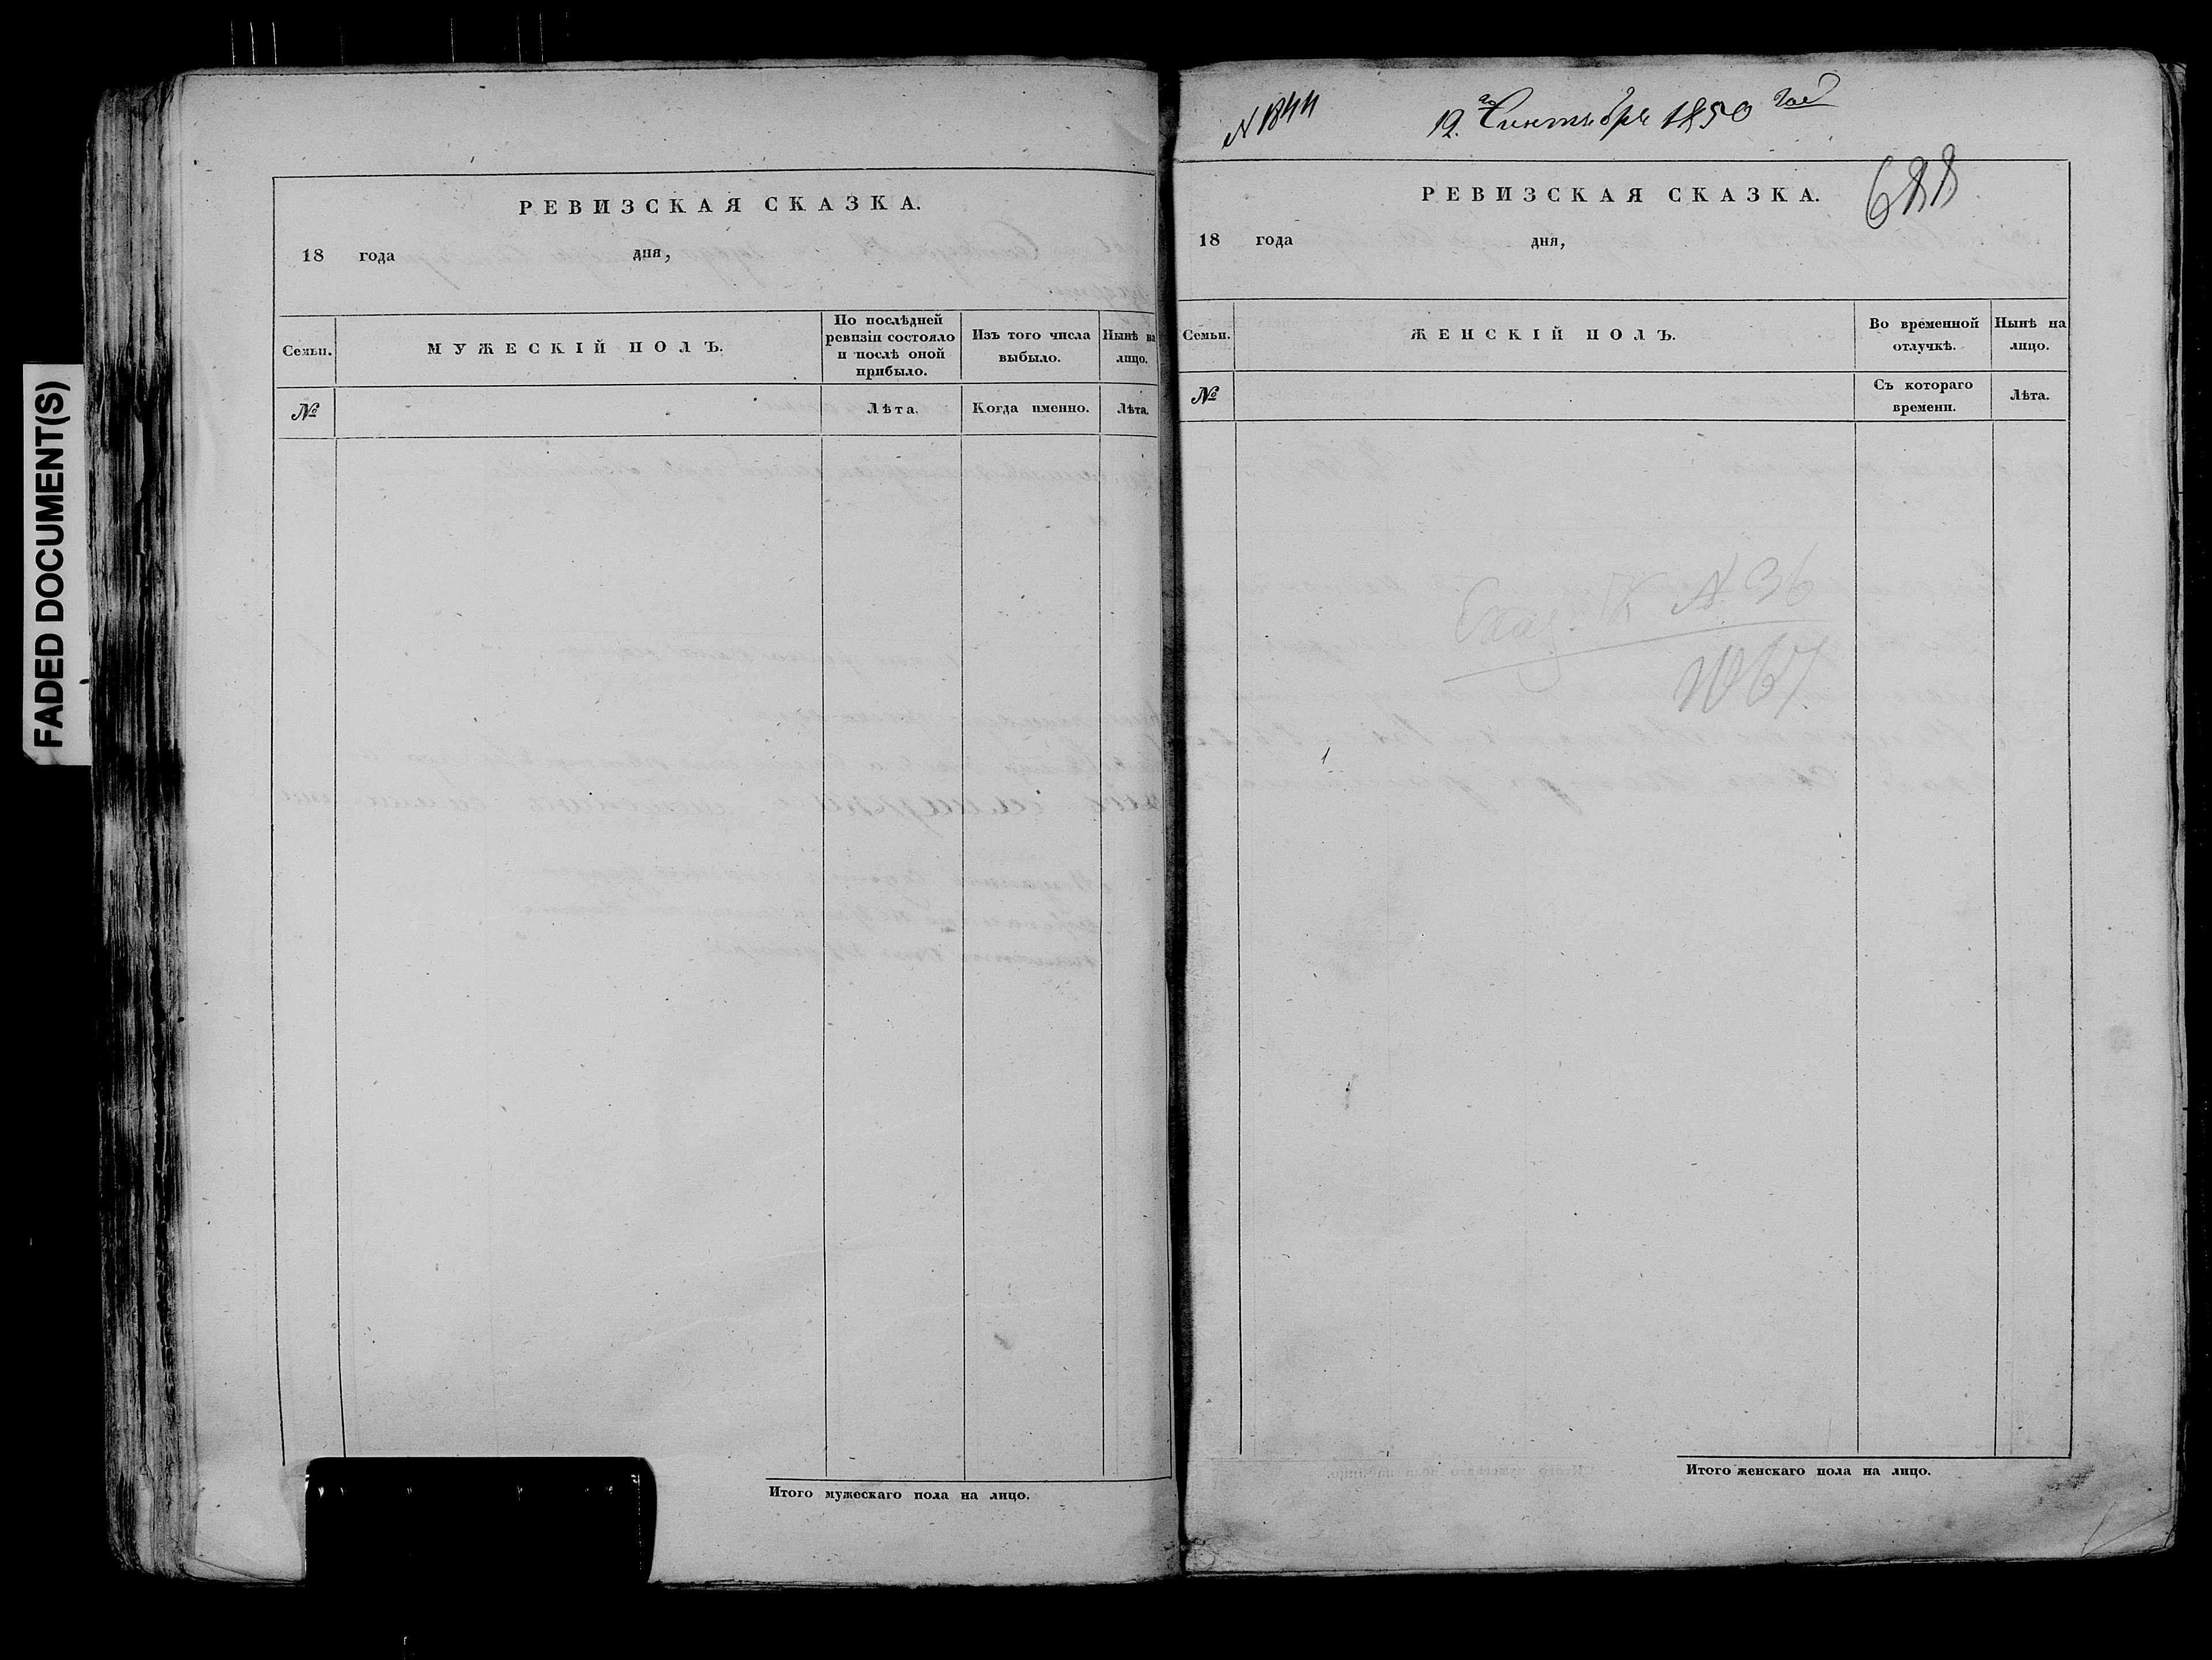 FADED DOCUMENT(S)
РЕВИЗСКАЯ СКАЗКА.
18 года дня,
Семьи.
МУЖЕСКІЙ ПОЛЪ.
По послѣдней
ревизіи состояло
и послѣ оной
прибыло.
Изъ того числа
выбыло.
Нынѣ на
лицо.
№
Лѣта.
Когда именно.
Лѣта.
Итого мужескаго пола на лицо.
N 1844
12го Сентября 1850 года
688
РЕВИЗСКАЯ СКАЗКА.
18 года дня,
Семьи.
ЖЕНСКІЙ ПОЛЪ.
Во временной
отлучкѣ.
Нынѣ на
лицо.
№
Съ котораго
времени.
Лѣта.
N 36
Итого женскаго пола на лицо.